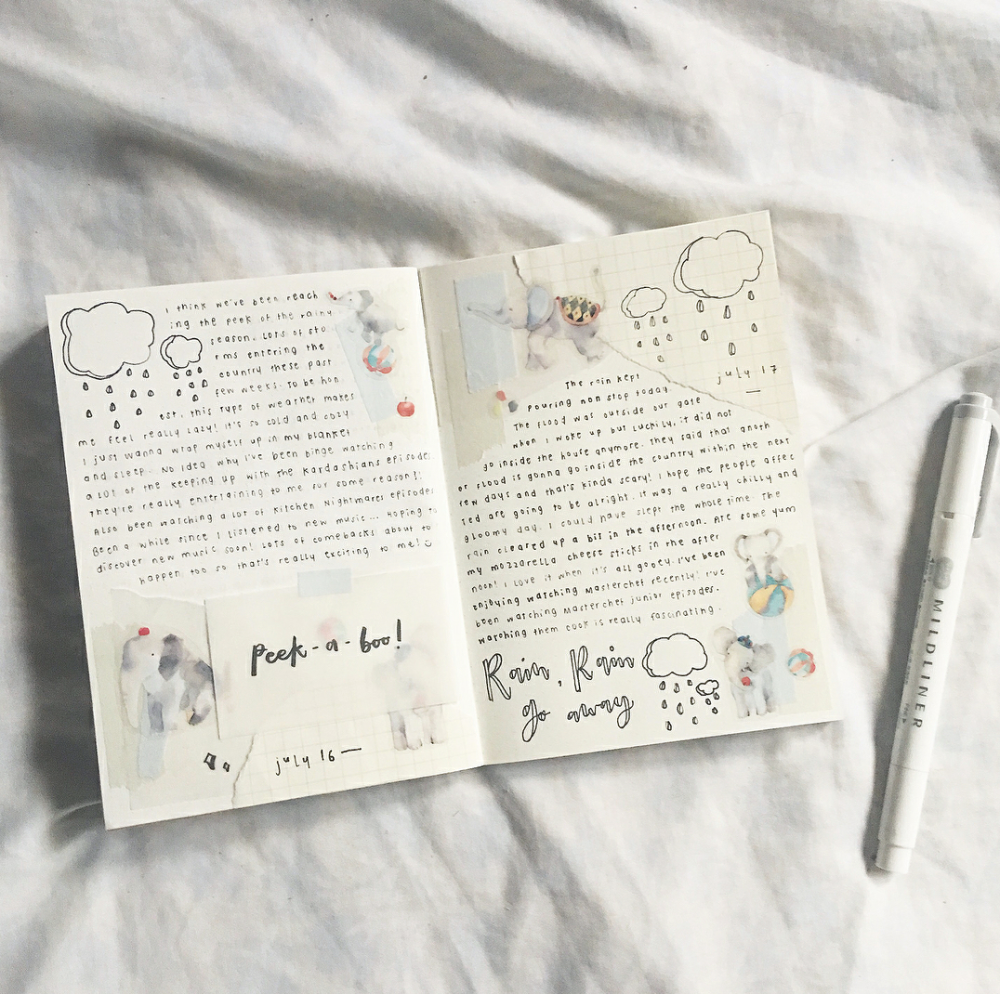 I think we've been reach
ing the peek of the rainy
season. Lots of sto
rms entering the
country these past
few weeks. To be hon
est, this type of weather makes
me feel really lazy! It's so cold and cozy
I just wanna wrap myself up in my blanket
and sleep. No idea why I've been binge watching
a lot of the Keeping up with the Kardashians episodes
They're really entertaining to me for some reason!!
Also been watching a lot of Kitchen Nightmares episodes
Been a while since I listened to new music... Hoping to
discover new music soon! Lots of comebacks about to
happen too so that's really exciting to me!
Peek-a-boo!
july 16
july 17
The rain kept
pouring non stop today.
The flood was outside our gate
when I woke up but luckily, it did not
go inside the house anymore. They said that anoth
er flood is gonna go inside the country within the next
few days and that's kinda scary! I hope the people affec
ted are going to be alright. It was a really chilly and
gloomy day. I could have slept the whole time. The
rain cleared up a bit in the afternoon. Ate some yum
my mozzarella cheese sticks in the after
noon! I love it when it's all gooey. I've been
enjoying watching Masterchef recently! I've
been watching Masterchef Junior episodes.
Watching them cook is really fascinating.
Rain, Rain
go away
MILDLINER